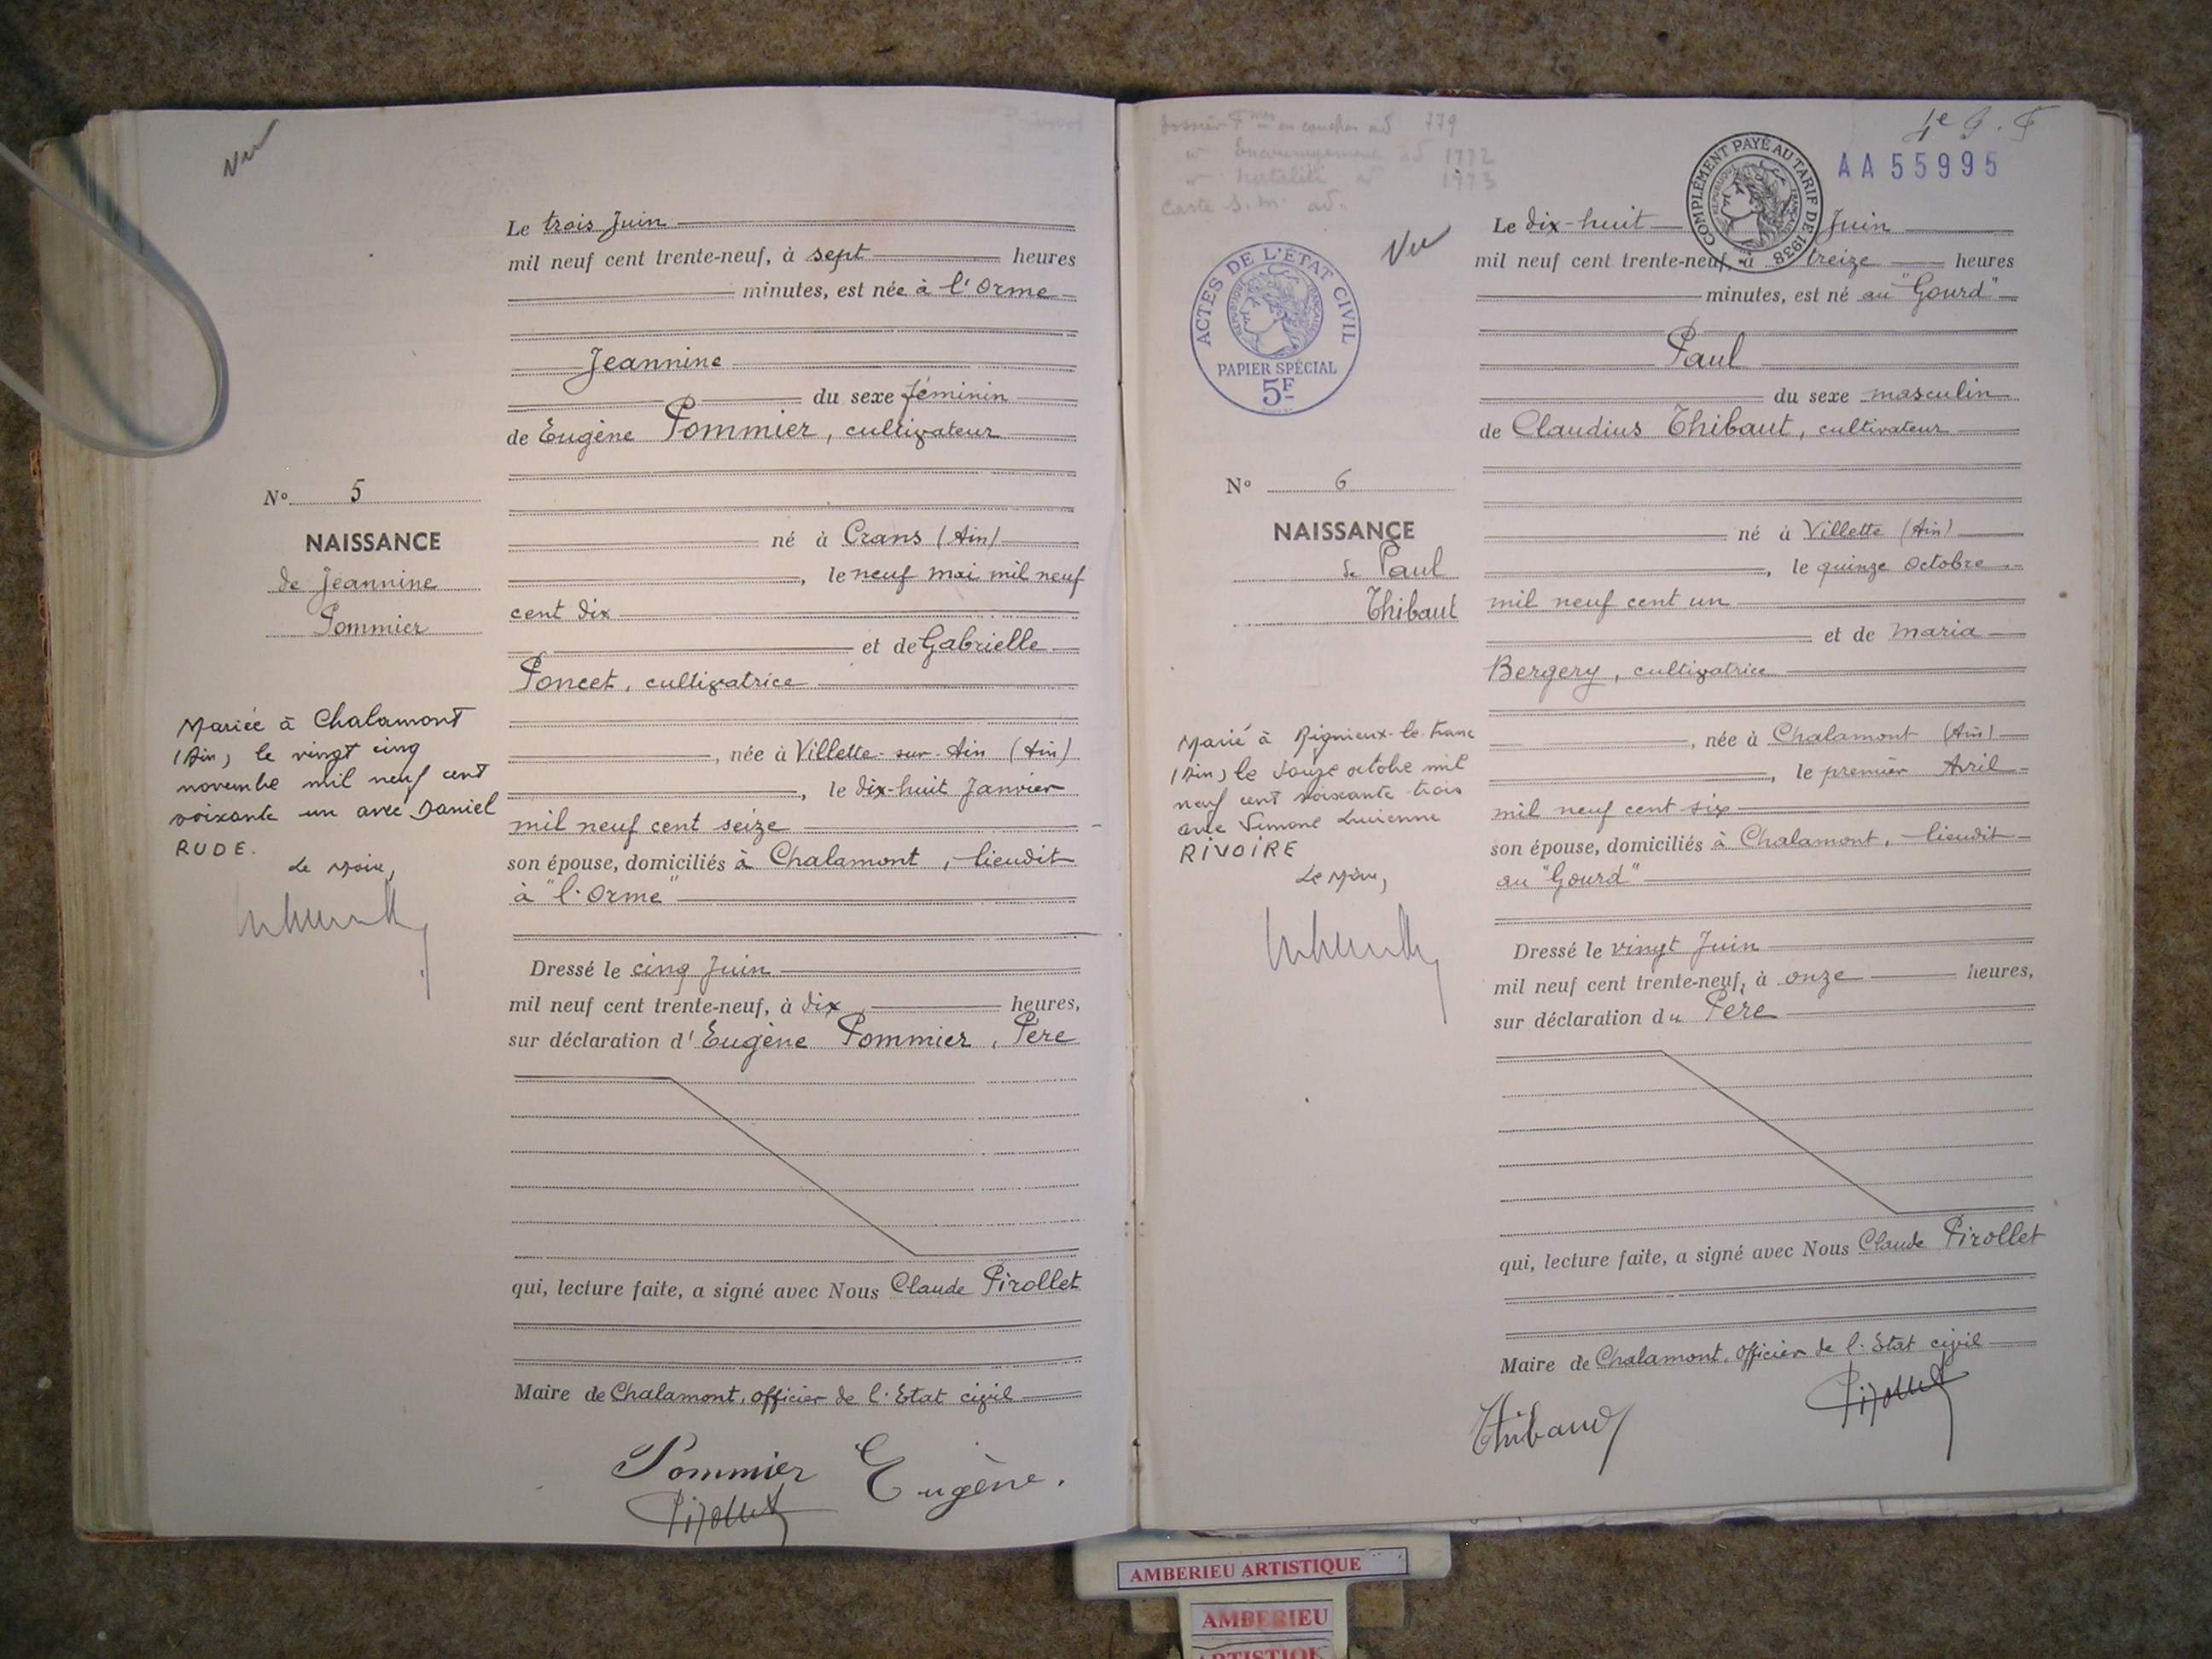 Vu
Le trois Juin
mil neuf cent trente-neuf, à sept heures
minutes, est née à l'Orme
Jeannine
du sexe féminin
de Eugène Pommier, cultivateur
né à Crans (Ain)
, le neuf mai mil neuf
cent dix
et de Gabrielle
Poncet, cultivatrice
, née à Villette-sur-Ain (Ain)
, le dix-huit Janvier
mil neuf cent seize
son épouse, domiciliés à Chalamont, lieudit
à "l'Orme"
Dressé le cinq Juin
mil neuf cent trente-neuf, à dix heures,
sur déclaration d'Eugène Pommier, Père
qui, lecture faite, a signé avec Nous Claude Pirollet
Maire de Chalamont, officier de l'Etat civil
Pommier Eugène.
Pirollet
N° 5
NAISSANCE
de Jeannine
Pommier
Mariée à Chalamont
(Ain) le vingt cinq
novembre mil neuf cent
soixante un avec Daniel
RUDE.
Le Maire,
dossier Fmes en couches ad 779
Encouragement ad 1972
Natalité ad 1973
carte S.M. ad.
COMPLÉMENT PAYÉ AU TARIF DE 1938
REPUBLIQUE FRANÇAISE
AA 55995
ACTES DE L'ÉTAT CIVIL
REPUBLIQUE FRANÇAISE
PAPIER SPÉCIAL
5F
Vu
Le dix-huit Juin
mil neuf cent trente-neuf, à treize heures
minutes, est né au "Gourd"
Paul
du sexe masculin
de Claudius Thibaut, cultivateur
né à Villette (Ain)
, le quinze Octobre
mil neuf cent un
et de Maria
Bergery, cultivatrice
, née à Chalamont (Ain)
, le premier Avril
mil neuf cent six
son épouse, domiciliés à Chalamont, lieudit
au "Gourd"
Dressé le vingt Juin
mil neuf cent trente-neuf, à onze heures,
sur déclaration du Père
qui, lecture faite, a signé avec Nous Claude Pirollet
Maire de Chalamont, officier de l'Etat civil
Thibaud
Pirollet
N° 6
NAISSANCE
de Paul
Thibaut
Marié à Rignieux-le-franc
(Ain) le douze octobre mil
neuf cent soixante trois
avec Simone Lucienne
RIVOIRE
Le Maire,
AMBERIEU ARTISTIQUE
AMBERIEU
ARTISTIQUE